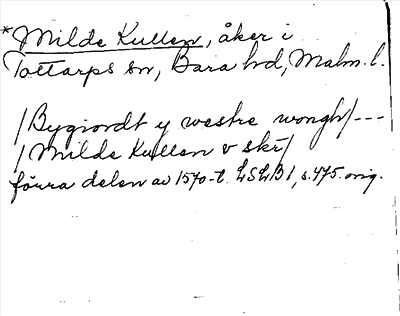 *Milde Kullen, åker i
Tottarps sn, Bara hd, Malm. l.
/Bygiordt y westre wongh/---
/Milde Kullen v skr/
förra delen av 1570-t. LSLB 1, s. 475. orig.